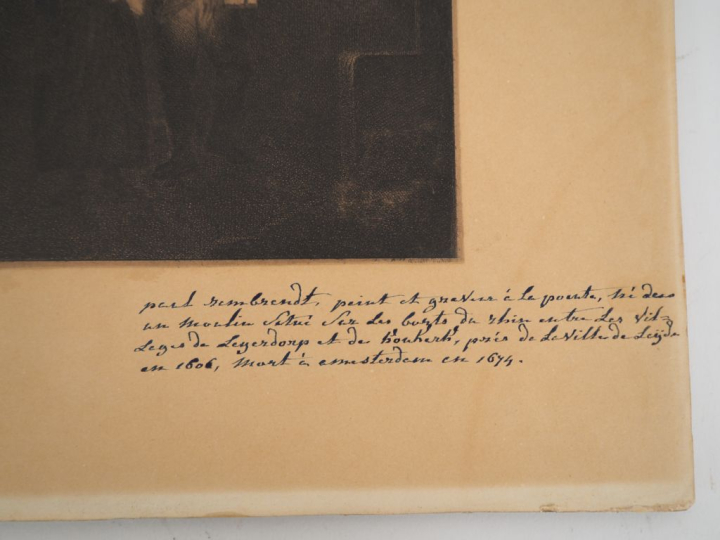 paul rembrendt, peint et graveur à la pointe, né dens
un moulin situé sur les borts du rhin entre les Vil-
lages de Leyerdorp et de Koukerk, près de la ville de Leijde
en 1606, mort à emsterdam en 1674.